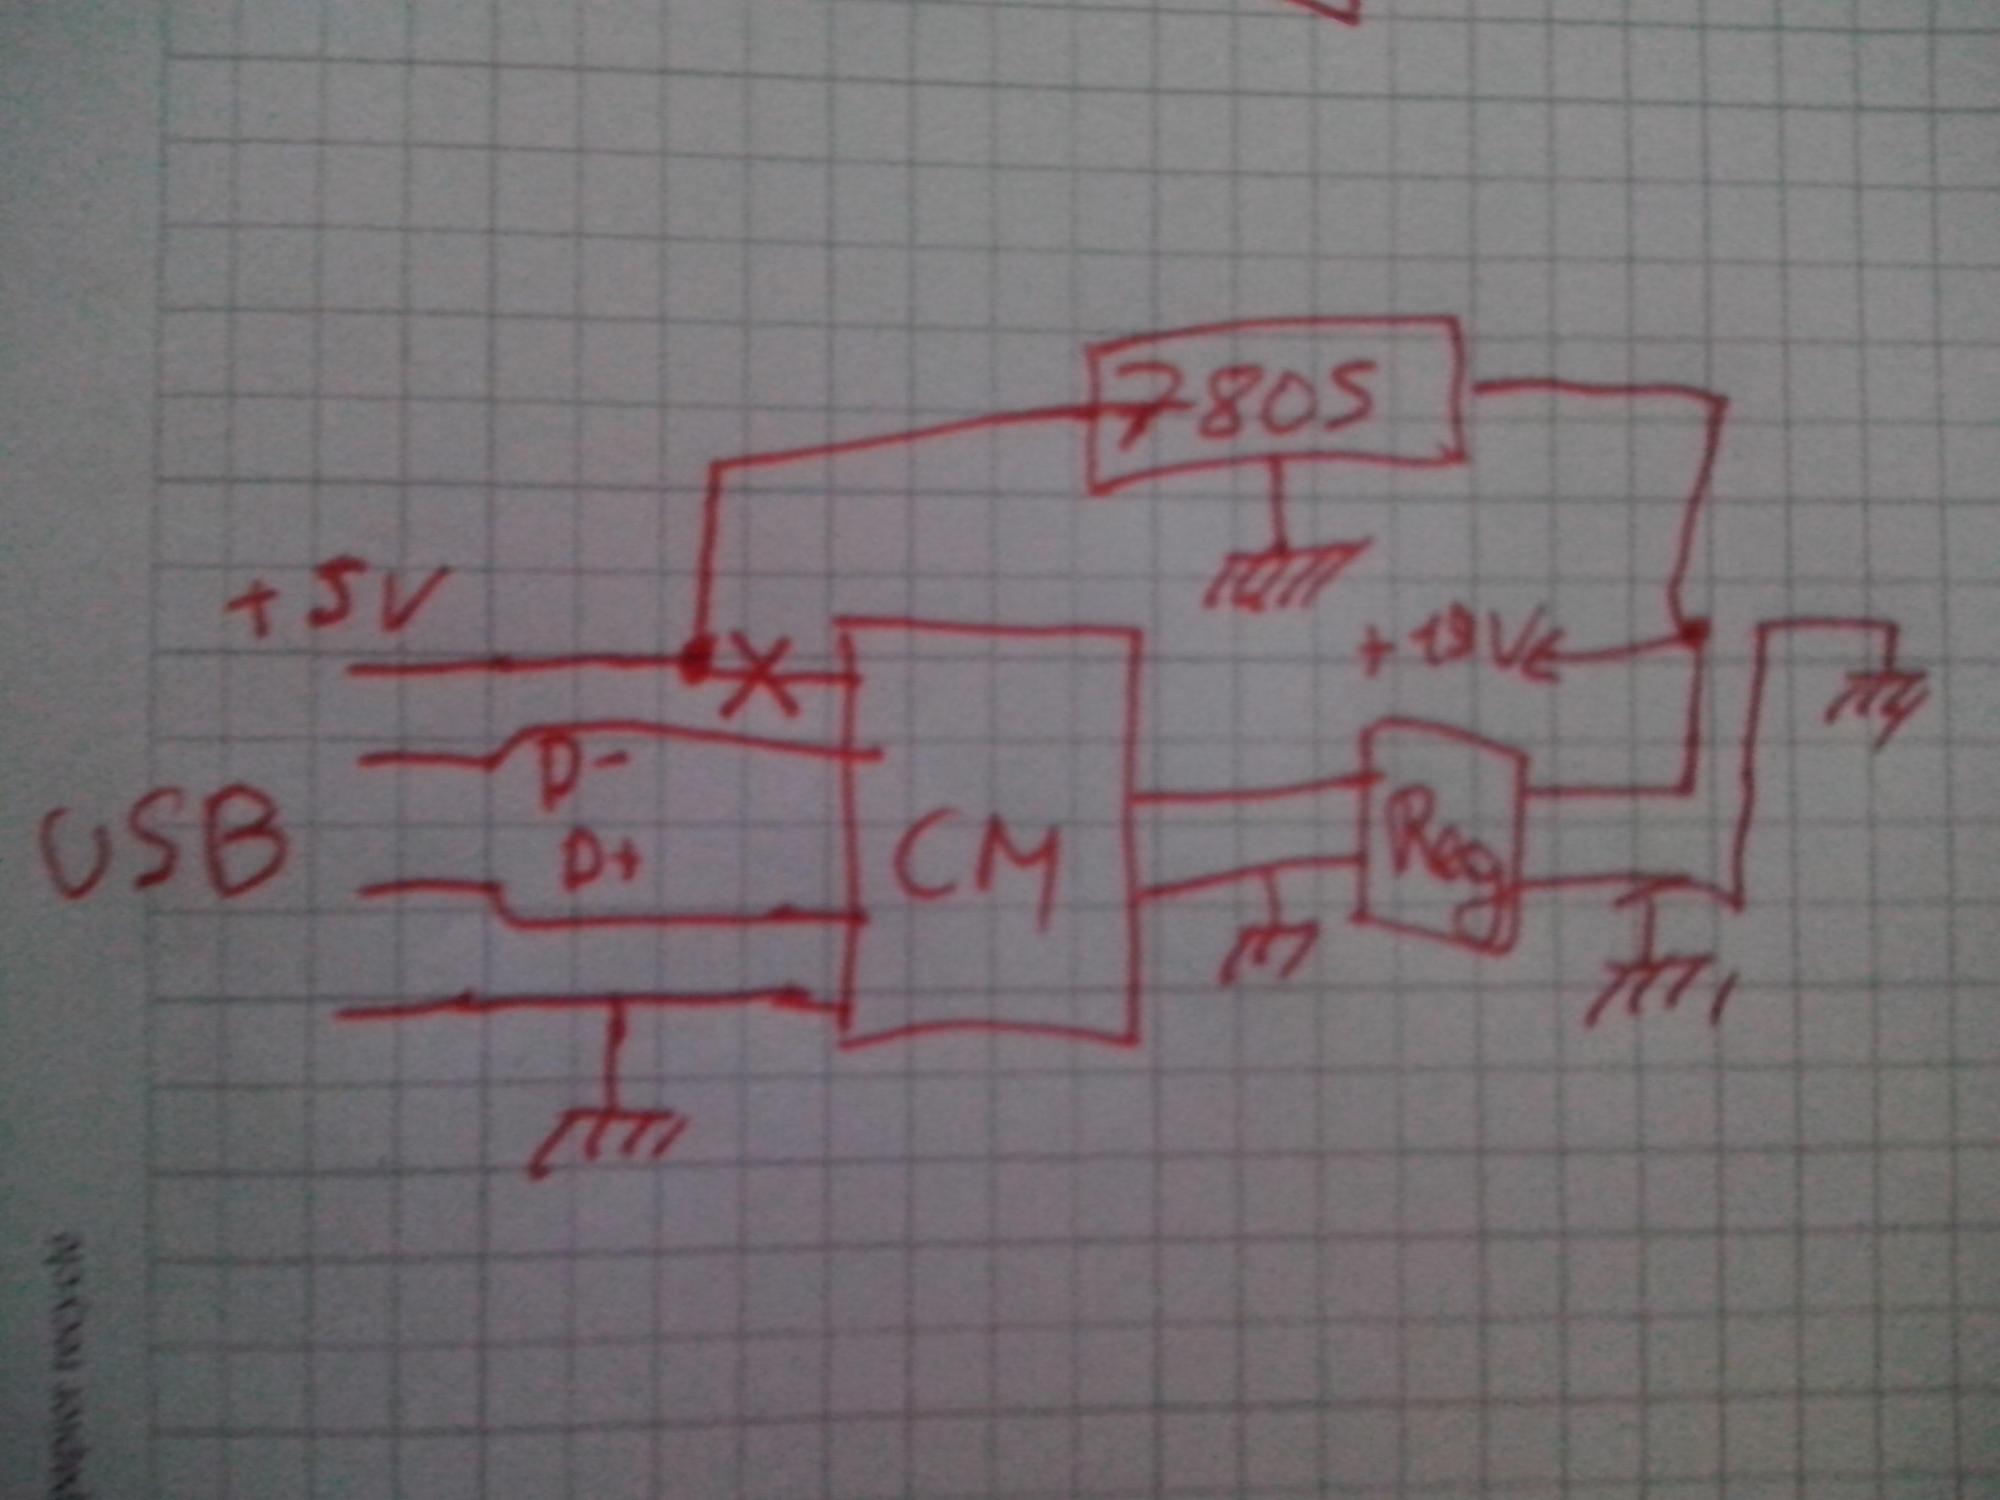 7805
+5V
+19V
D-
USB
D+
CM
Reg